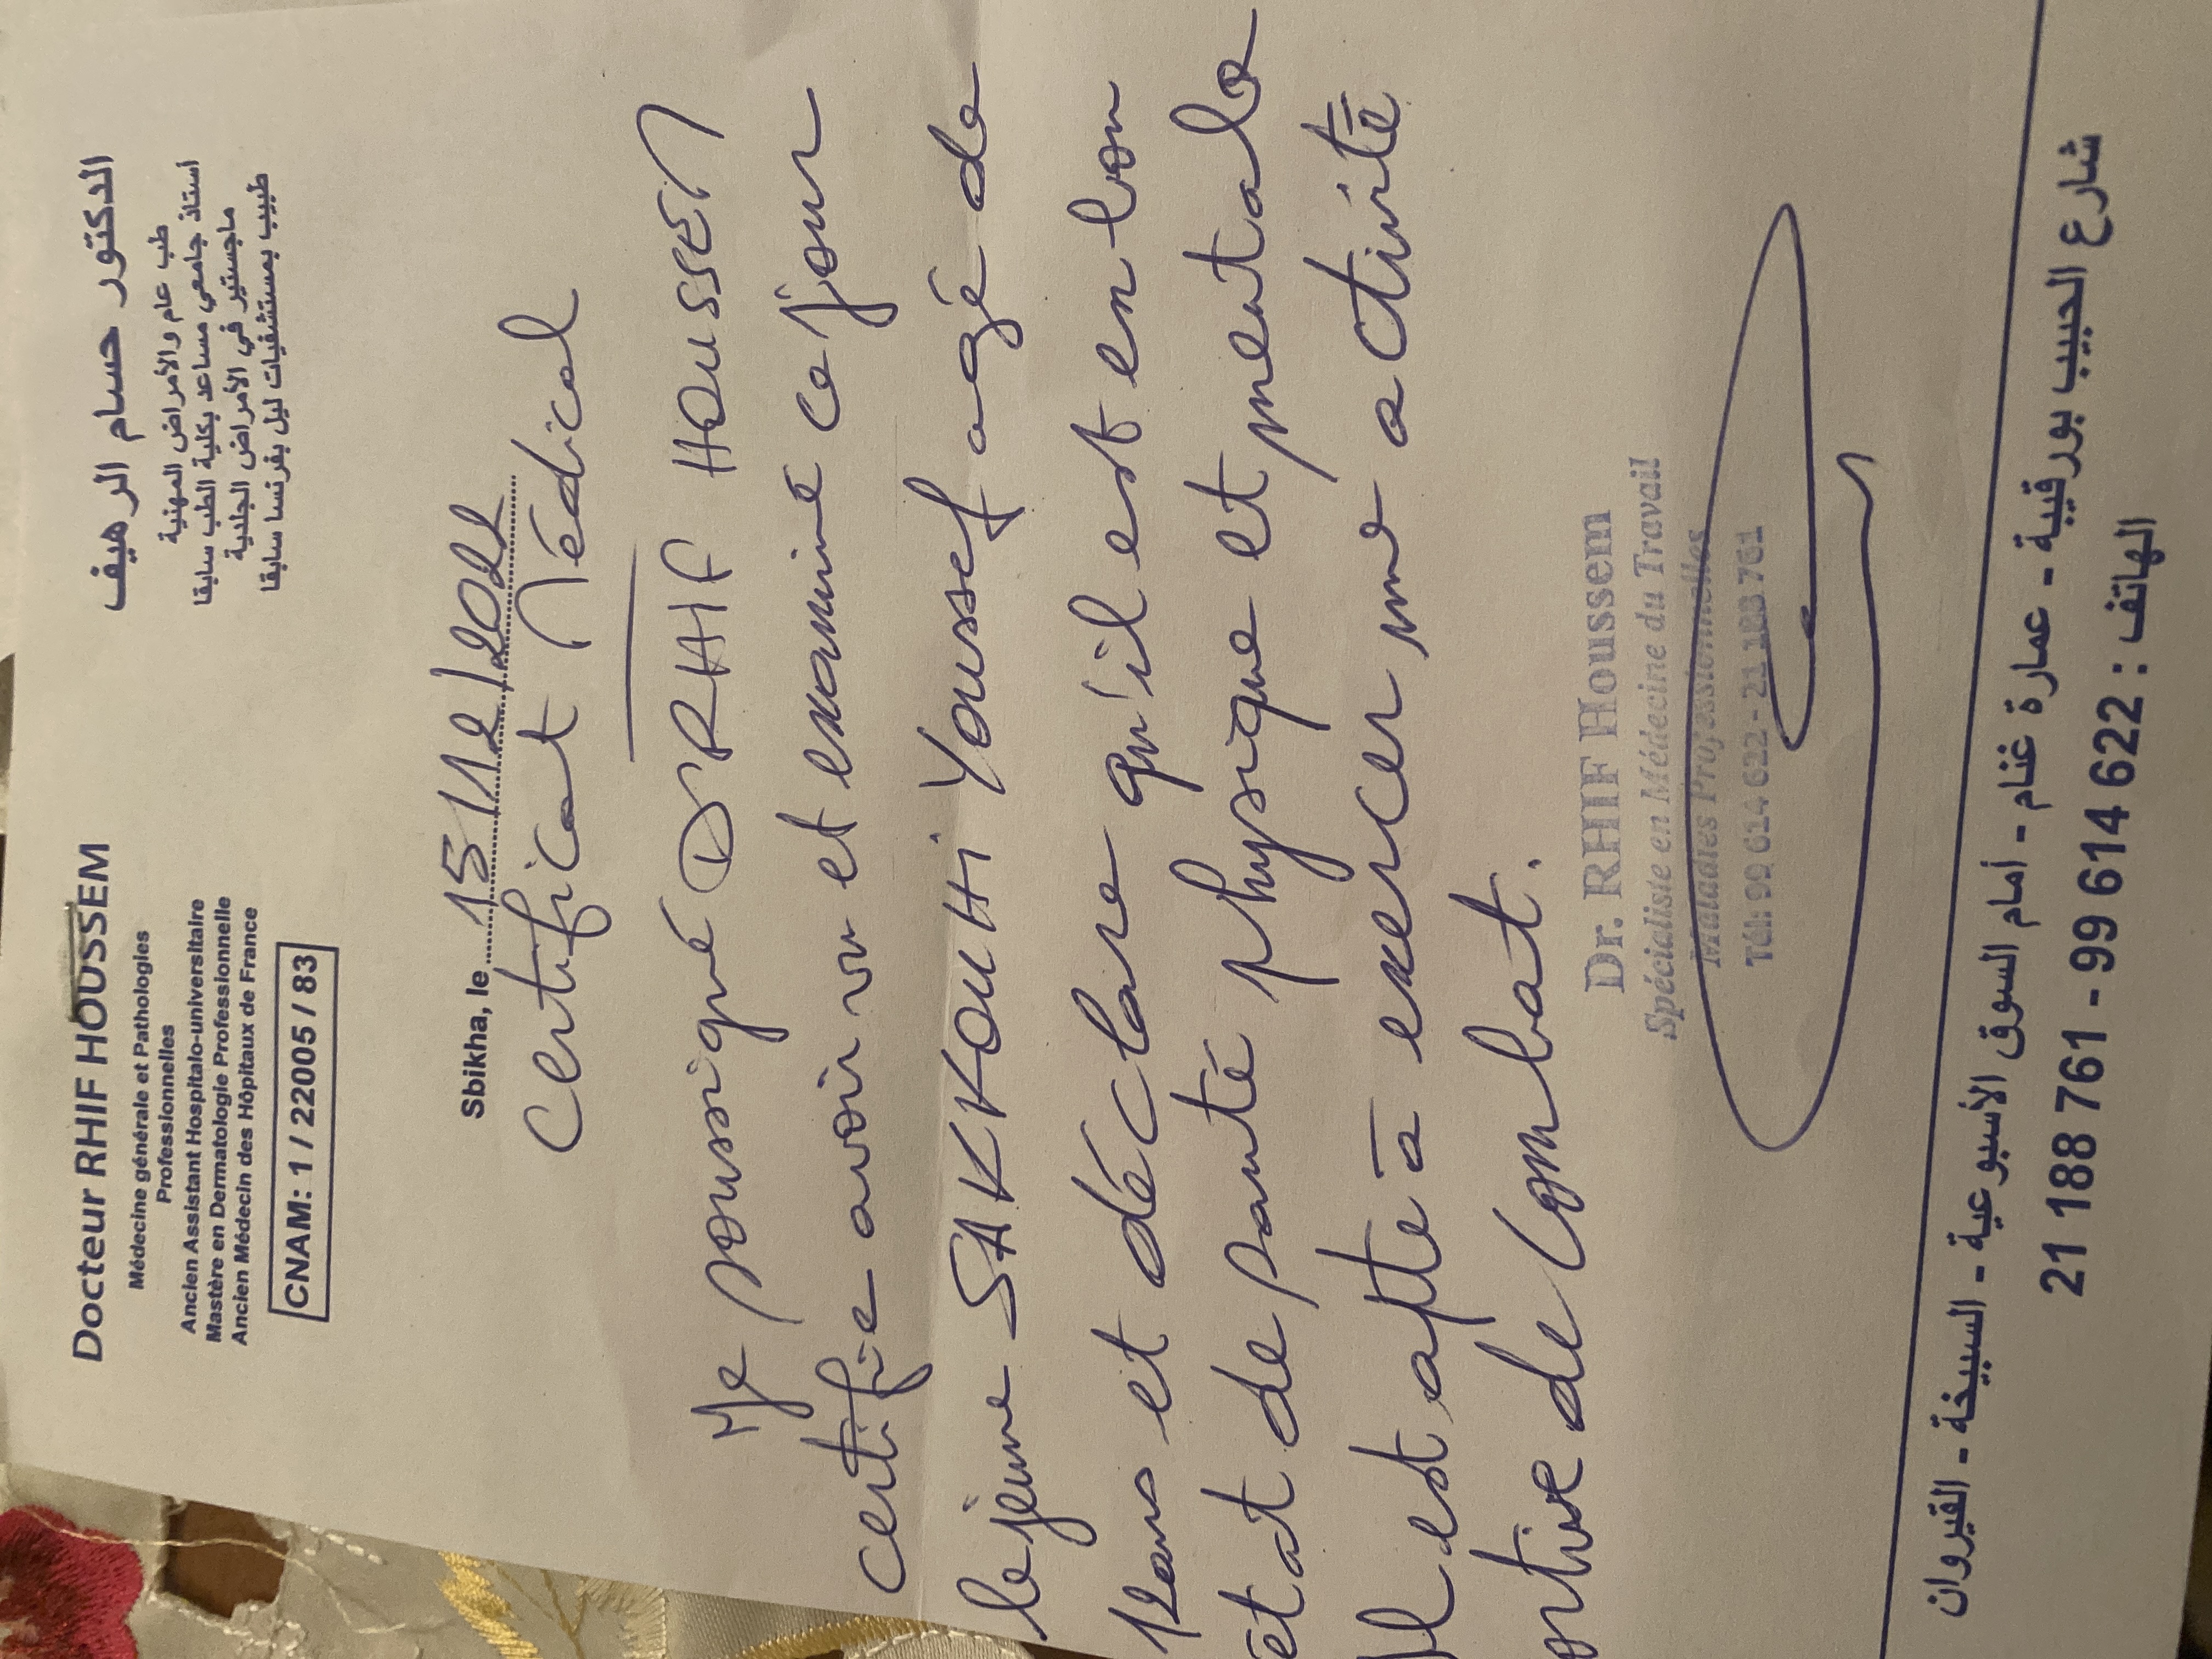 Docteur RHIF HOUSSEM
Médecine générale et Pathologies
Professionnelles
Ancien Assistant Hospitalo-universitaire
Mastère en Dermatologie Professionnelle
Ancien Médecin des Hôpitaux de France
CNAM: 1 / 22005 / 83
الدكتور حسام الرهيف
طب عام والأمراض المهنية
أستاذ جامعي مساعد بكلية الطب سابقا
ماجستير في الأمراض الجلدية
طبيب بمستشفيات ليل بفرنسا سابقا
Sbikha, le 15/12/2022
Certificat Médical
Je soussigné DR RHIF HOUSSEM
certifie avoir vu et examiné ce jour
le jeune SAKKOUHI Youssef agé de
12 ans et déclare qu'il est en bon
état de santé physique et mentale
Il est apte à exercer une activité
ortive de Combat.
Dr. RHIF Houssem
Spécialiste en Médecine du Travail
Maladies Professionnelles
Tél: 99 614 622 - 21 188 761
شارع الحبيب بورقيبة - عمارة غنام - أمام السوق الأسبوعية - السبيخة - القيروان
الهاتف : 21 188 761 - 99 614 622